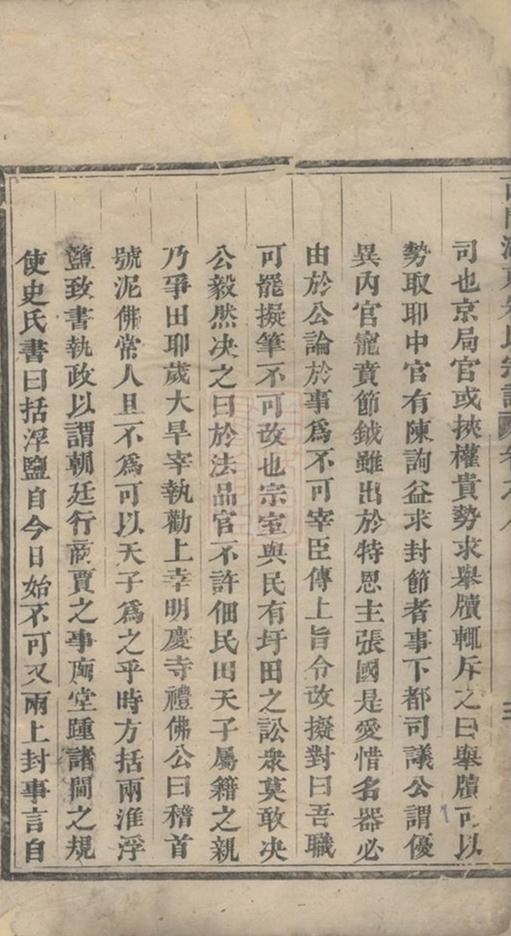 司也京局官或挾權貴勢求舉牘輒斥之曰舉牘可以
勢取耶中官有陳詢益求封節者事下都司議公謂優
異內官寵賁節鉞雖出於特恩主張國是愛惜名器必
由於公論於事爲不可宰臣傳上旨令改擬對曰吾職
可罷擬筆不可改也宗室與民有圩田之訟衆莫敢决
公毅然决之曰於法品官不許佃民田天子屬籍之親
乃爭田耶歲大旱宰執勸上幸明慶寺禮佛公曰稽首
號泥佛常人且不爲可以天子爲之乎時方括兩淮浮
鹽致書執政以謂朝廷行商賈之事廟堂踵諸闆之規
使史氏書曰括浮鹽自今日始不可又兩上封事言自